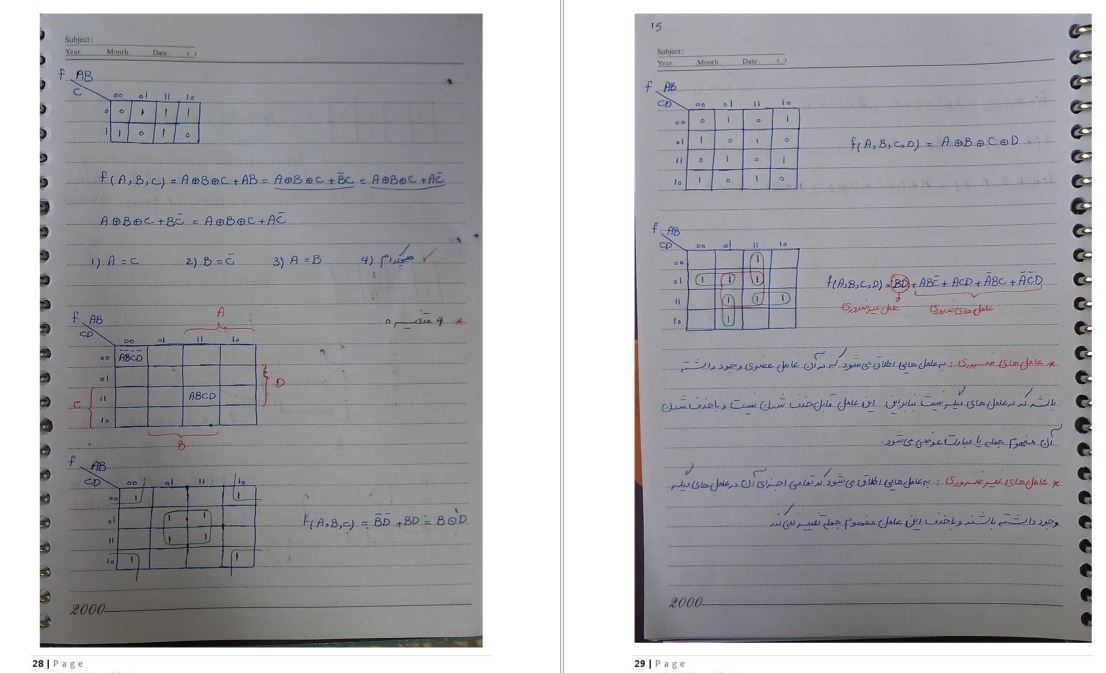 Subject:
Year. Month. Date. ( )
f AB
C 00 01 11 10
0 0 1 1 1
1 1 0 1 0
f(A,B,C) = A⊕B⊕C + AB = A⊕B⊕C + B̅C = A⊕B⊕C + AC̅
A⊕B⊕C + BC̅ = A⊕B⊕C + AC̅
1) A = C 2) B = C̅ 3) A = B 4) هیچکدام ✓
* 4 متغیره
f AB A
CD 00 01 11 10
00 A̅B̅C̅D̅
01
11 ABCD
10
C D
B
f AB
CD 00 01 11 10
00 1 1
01 1 1
11 1 1
10 1 1
f(A,B,C) = B̅D̅ + BD = B⊙D
2000
28 | Page
15
Subject:
Year. Month. Date. ( )
f AB
CD 00 01 11 10
00 0 1 0 1
01 1 0 1 0
11 0 1 0 1
10 1 0 1 0
f(A,B,C,D) = A⊕B⊕C⊕D
f AB
CD 00 01 11 10
00 1
01 1 1 1
11 1 1 1
10 1
f(A,B,C,D) = BD + ABC̅ + ACD + A̅BC + A̅C̅D
عامل غیرضروری عامل های ضروری
* عامل های ضروری : به عامل هایی اطلاق می شود که در آن عامل عضوی وجود داشته
باشد که در عامل های دیگر نیست بنابراین این عامل قابل حذف شدن نیست و با حذف شدن
آن مفهوم جمله یا عبارت عوض می شود.
* عامل های غیرضروری : به عامل هایی اطلاق می شود که تمامی اجزای آن در عامل های دیگر
وجود داشته باشند و با حذف این عامل مفهوم جمله تغییر نمی کند
2000
29 | Page